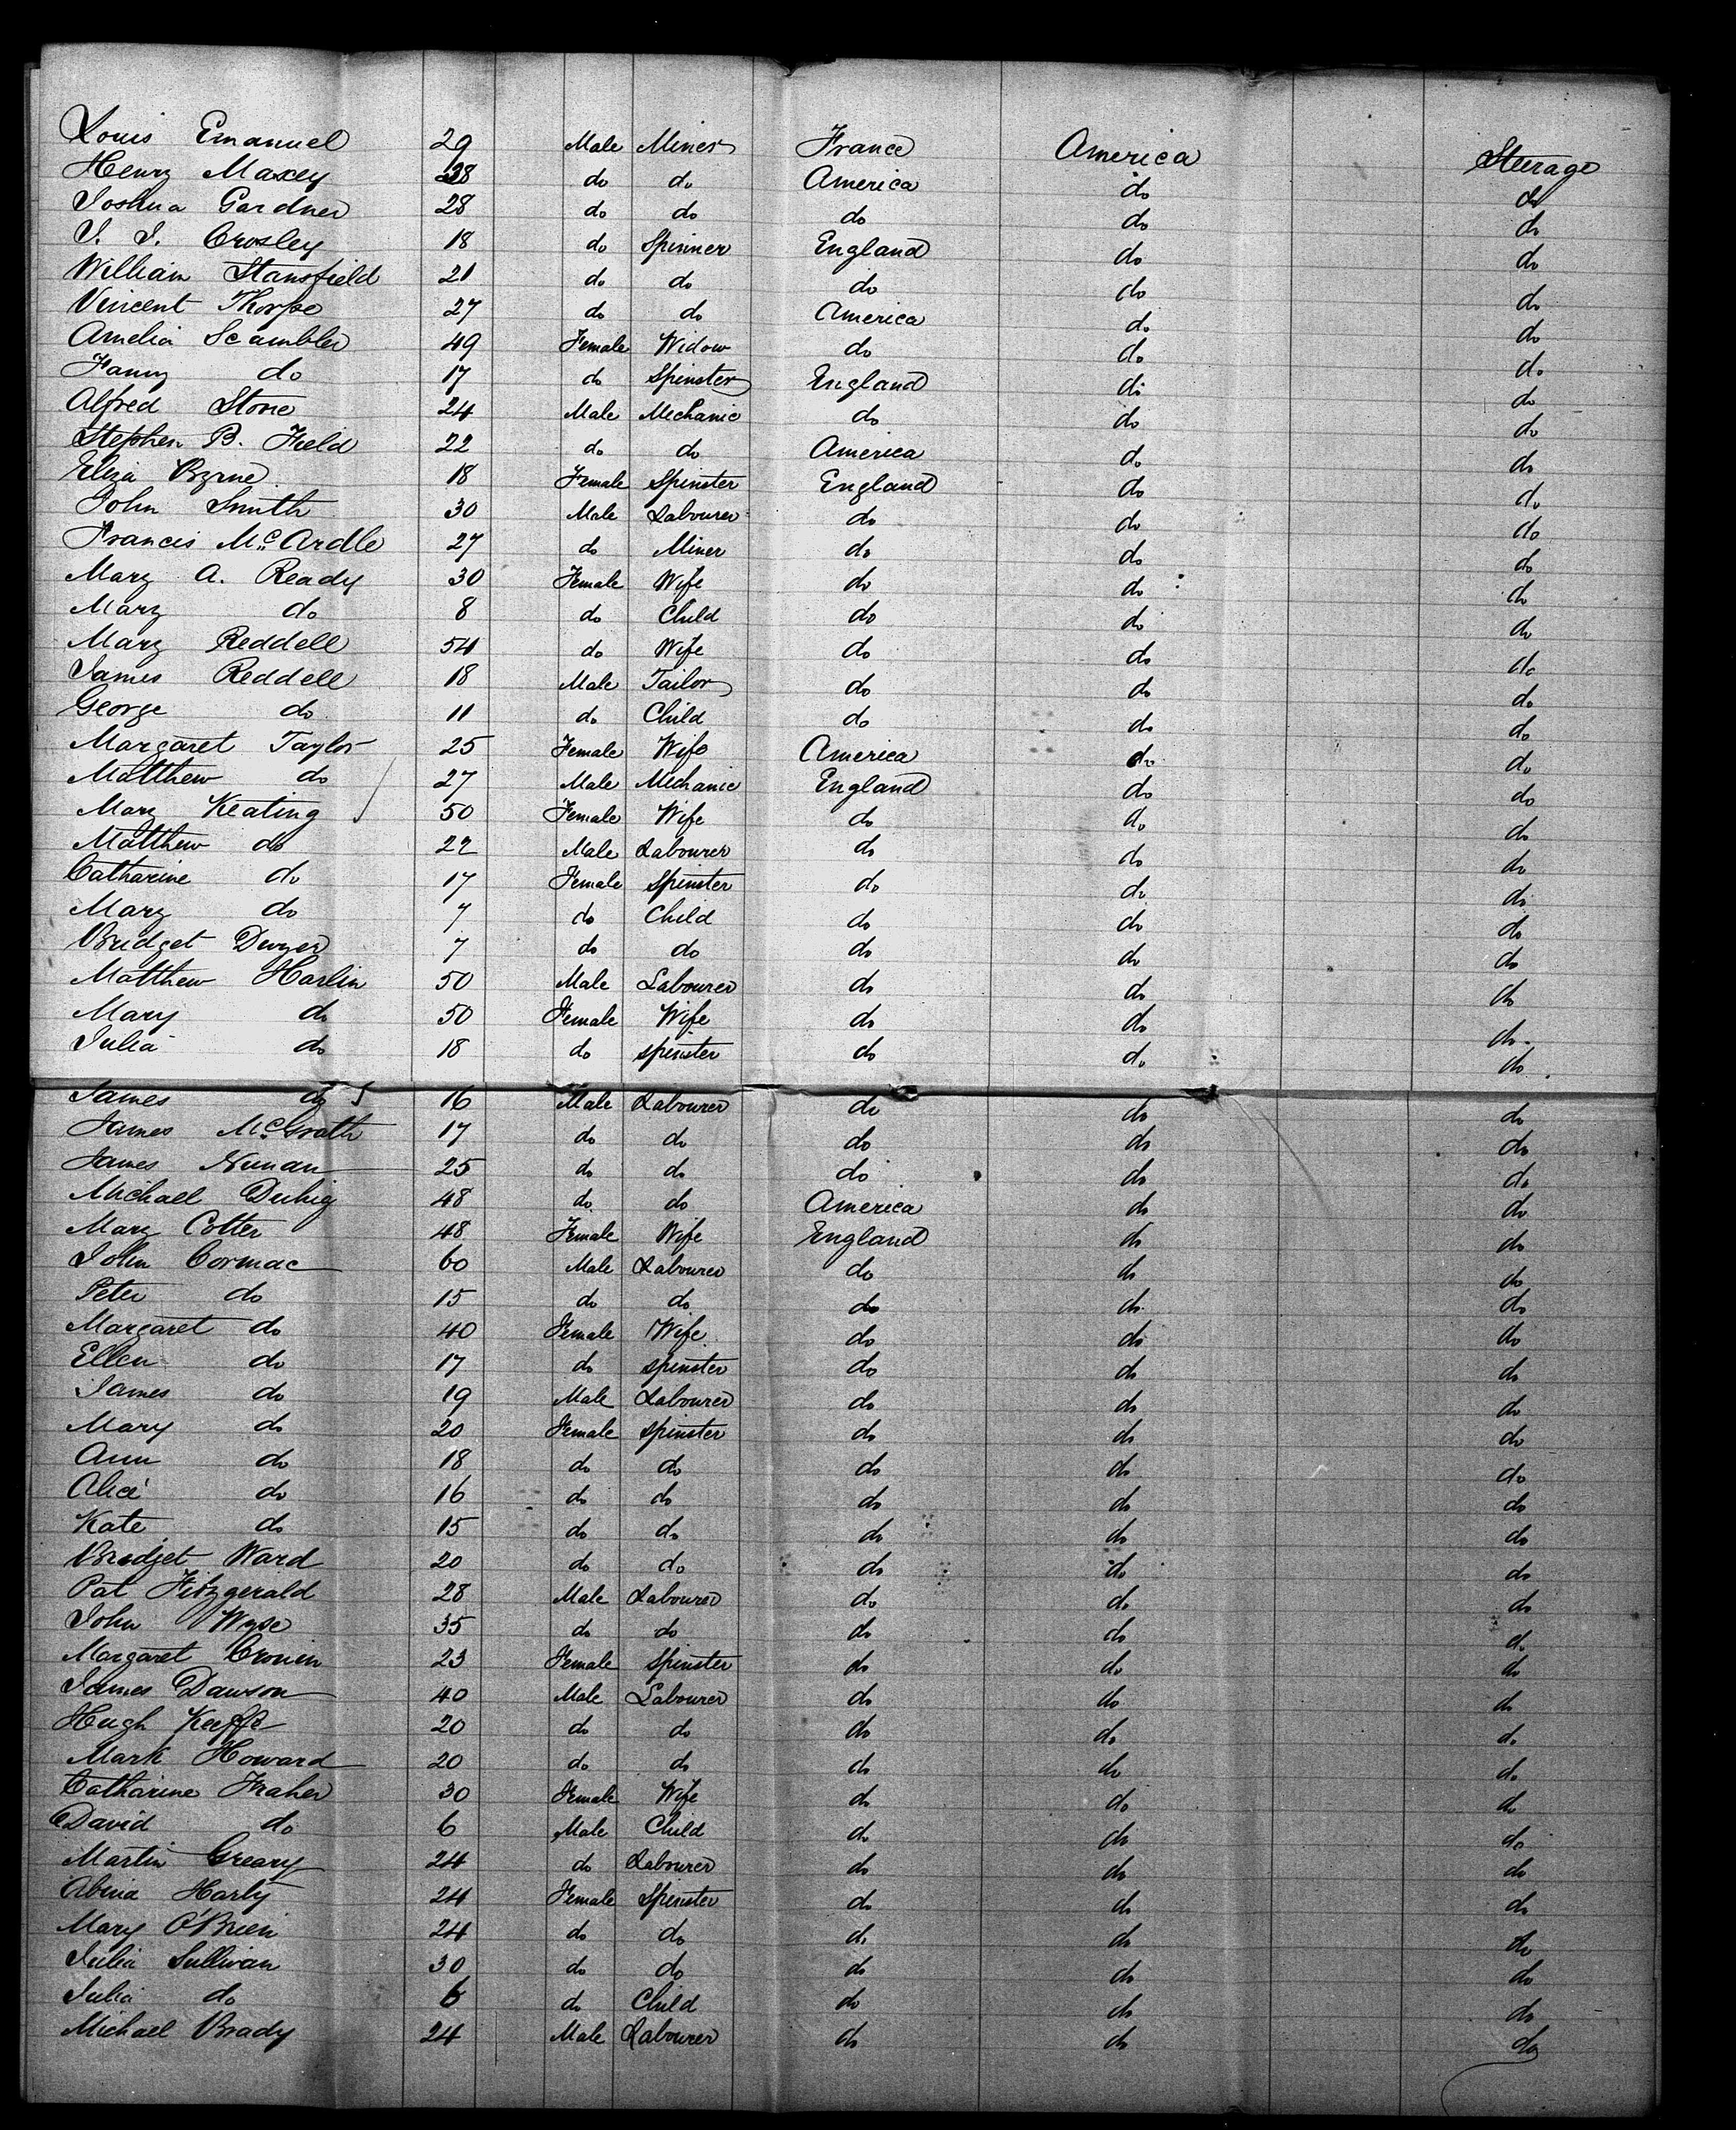 Louis Emanuel 29 Male Miner France America Steerage
Henry Maxey 38 do do America do do
Joshua Gardner 28 do do do do do
J. J. Crosley 18 do Spinner England do do
William Stansfield 21 do do do do do
Vincent Thorpe 27 do do America do do
Amelia Scambler 49 Female Widow do do do
Fanny do 17 do Spinster England do do
Alfred Stone 24 Male Mechanic do do do
Stephen B. Field 22 do do America do do
Eliza Byrne 18 Female Spinster England do do
John Smith 30 Male Labourer do do do
Francis McArdle 27 do Miner do do do
Mary A. Ready 30 Female Wife do do do
Mary do 8 do Child do do do
Mary Reddell 54 do Wife do do do
James Reddell 18 Male Tailor do do do
George do 11 do Child do do do
Margaret Taylor 25 Female Wife America do do
Matthew do 27 Male Mechanic England do do
Mary Keating 50 Female Wife do do do
Matthew do 22 Male Labourer do do do
Catharine do 17 Female Spinster do do do
Mary do 7 do Child do do do
Bridget Dwyer 7 do do do do do
Matthew Harlin 50 Male Labourer do do do
Mary do 50 Female Wife do do do
Julia do 18 do spinster do do do
James do 16 Male Labourer do do do
James McGrath 17 do do do do do
James Nunan 25 do do do do do
Michael Duhig 48 do do America do do
Mary Cotter 48 Female Wife England do do
John Cormac 60 Male Labourer do do do
Peter do 15 do do do do do
Margaret do 40 Female Wife do do do
Ellen do 17 do spinster do do do
James do 19 Male Labourer do do do
Mary do 20 Female spinster do do do
Ann do 18 do do do do do
Alice do 16 do do do do do
Kate do 15 do do do do do
Bridget Ward 20 do do do do do
Pat Fitzgerald 28 Male Labourer do do do
John Wyse 35 do do do do do
Margaret Cronin 23 Female Spinster do do do
James Dawson 40 Male Labourer do do do
Hugh Keeffe 20 do do do do do
Mark Howard 20 do do do do do
Catharine Fraher 30 Female Wife do do do
David do 6 Male Child do do do
Martin Greary 24 do Labourer do do do
Abina Harty 24 Female Spinster do do do
Mary O'Brien 24 do do do do do
Julia Sullivan 30 do do do do do
Julia do 6 do Child do do do
Michael Brady 24 Male Labourer do do do